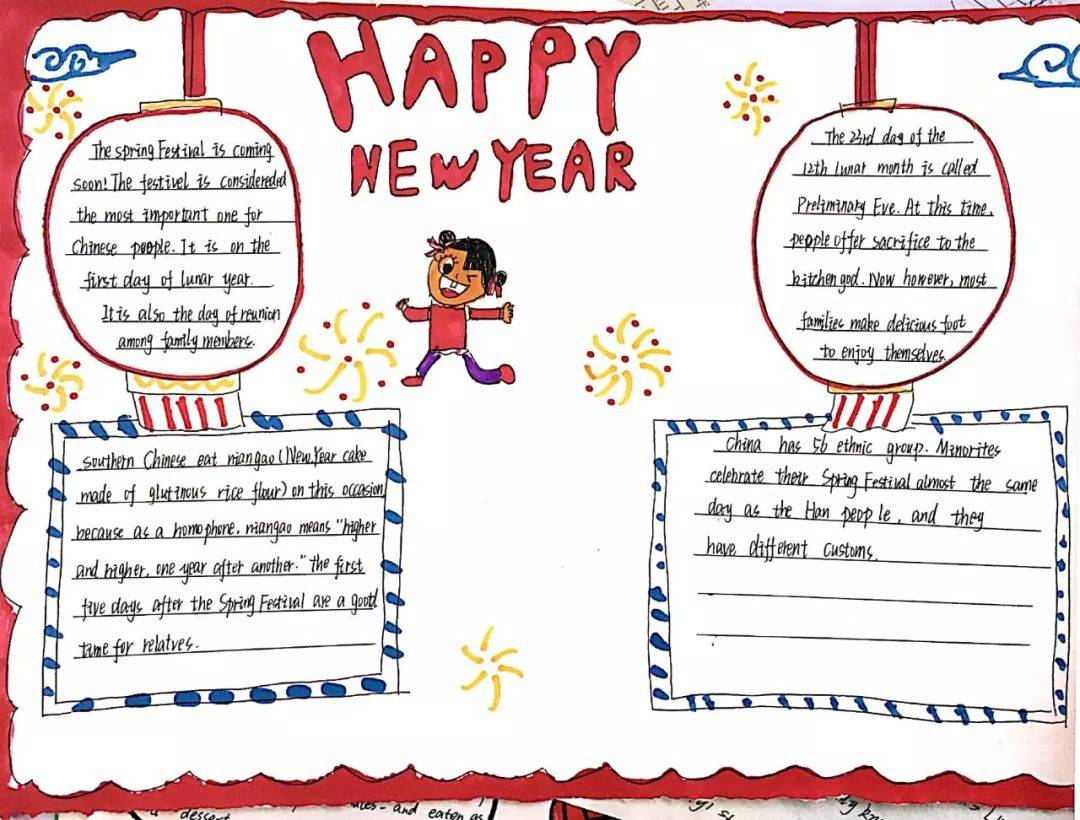 HAPPY
NEW YEAR
The spring Festival is coming
soon! The festivel is considereded
the most important one for
Chinese people. It is on the
first day of lunar year.
It is also the day of reunion
among family members.
The 23rd day of the
12th lunar month is called
Preliminary Eve. At this time,
people offer sacrifice to the
kitchen god. Now however, most
families make delicious foot
to enjoy themselves.
southern Chinese eat niangao (New Year cake
made of glutinous rice flour) on this occasion
because as a homophone, niangao means "higher
and higher, one year after another." the first
five days after the Spring Festival are a good
time for relatves.
China has 56 ethnic group. Minorites
celebrate their Spring Festival almost the same
day as the Han people, and they
have different customs.
dessert
and eaten as